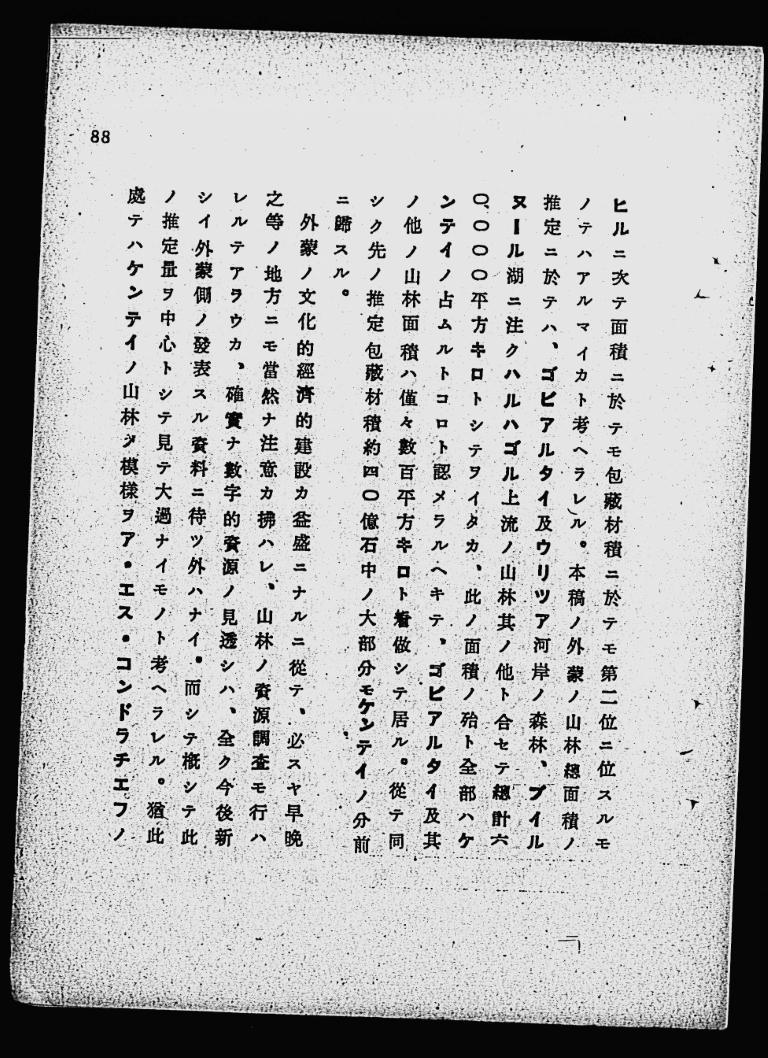 88
ヒルニ次テ面積ニ於テモ包藏材積ニ於テモ第二位ニ位スルモ
ノテハアルマイカト考ヘラレル。本稿ノ外蒙ノ山林總面積ノ
推定ニ於テハ、ゴビアルタイ及ウリツア河岸ノ森林、ブイル
ヌール湖ニ注クハルハゴル上流ノ山林其ノ他ト合セテ總計六
〇、〇〇〇平方キロトシテヲイタカ、此ノ面積ノ殆ト全部ハケ
ンテイノ占ムルトコロト認メラルヘキテ、ゴビアルタイ及其
ノ他ノ山林面積ハ僅々數百平方キロト看做シテ居ル。從テ同
シク先ノ推定包藏材積約四〇億石中ノ大部分モケンテイノ分前
ニ歸スル。
外蒙ノ文化的經濟的建設カ益盛ニナルニ從テ、必スヤ早晩
之等ノ地方ニモ當然ナ注意カ拂ハレ、山林ノ資源調査モ行ハ
レルテアラウカ、確實ナ數字的資源ノ見透シハ、全ク今後新
シイ外蒙側ノ發表スル資料ニ待ツ外ハナイ。而シテ概シテ此
ノ推定量ヲ中心トシテ見テ大過ナイモノト考ヘラレル。猶此
處テハケンテイノ山林ノ模様ヲア・エス・コンドラチエフノ